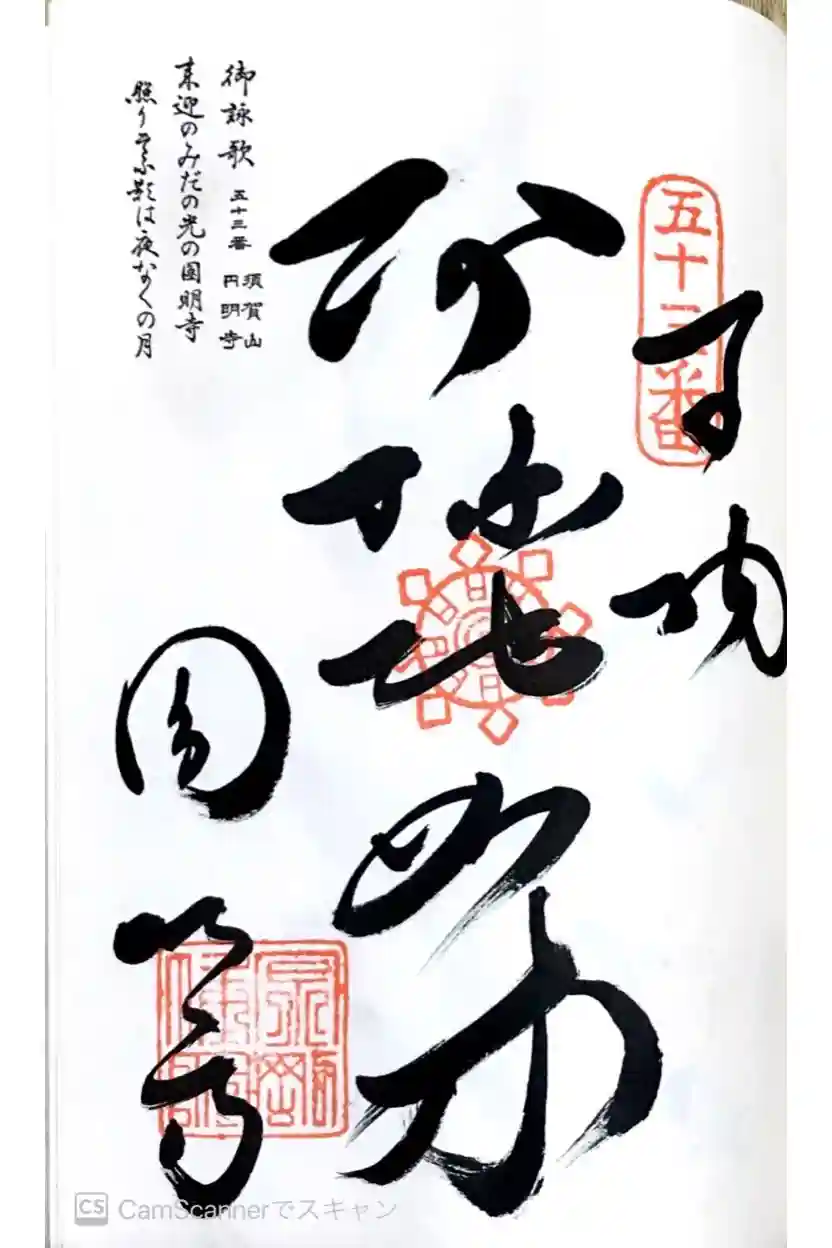 五十三番
奉納
阿弥陀如来
圓明寺
御詠歌 五十三番 須賀山 円明寺
来迎のみだの光の圓明寺
照りそふ影は夜な〱の月
CS CamScannerでスキャン